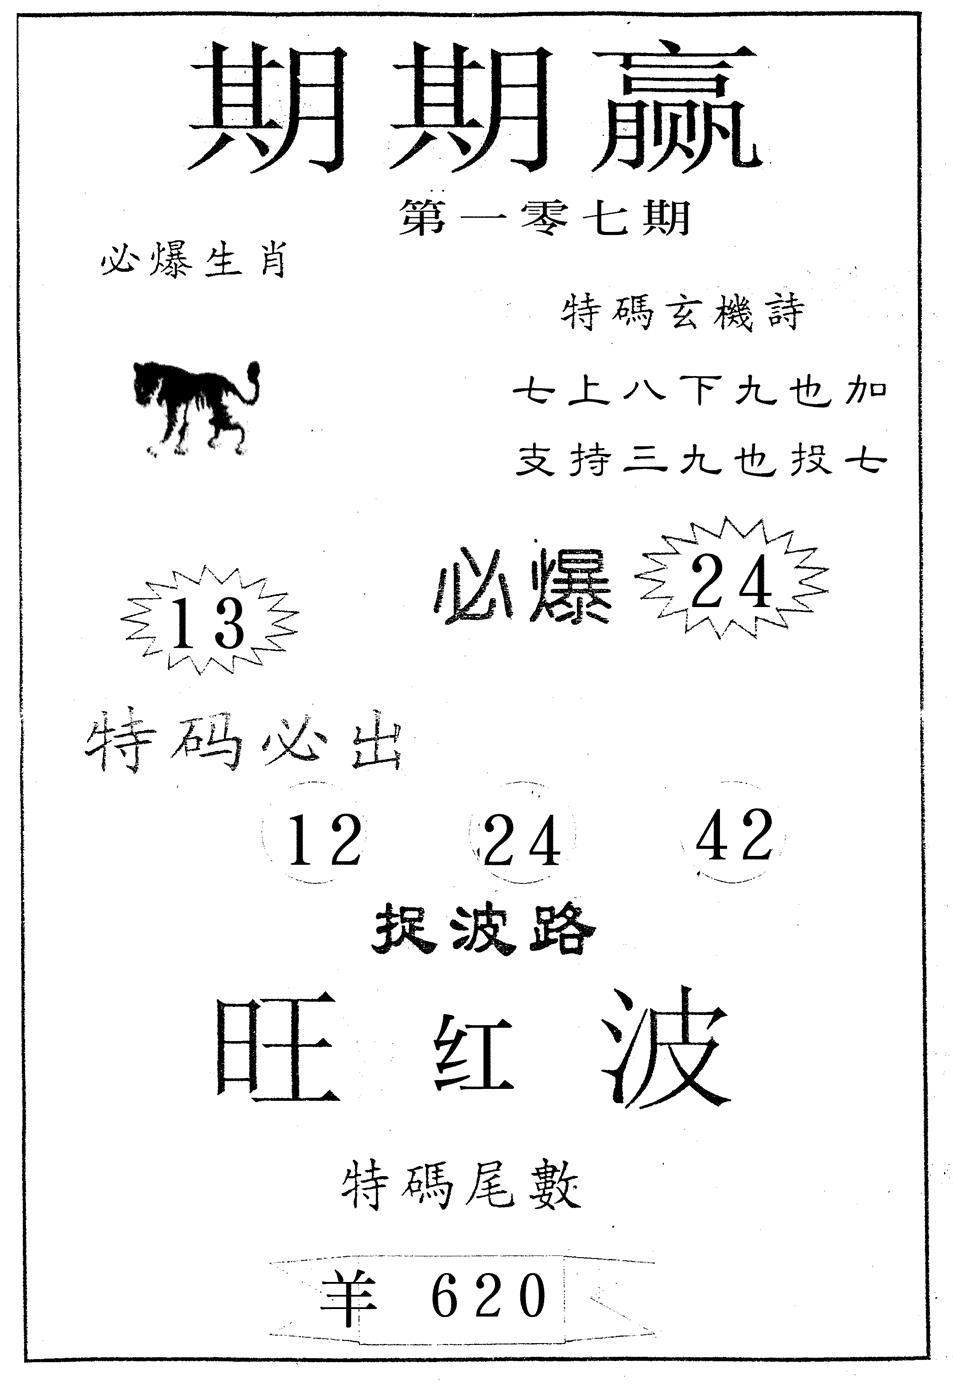 期期赢
第一零七期
必爆生肖
特碼玄機詩
七上八下九也加
支持三九也投七
必爆 24
13
特码必出
12 24 42
捉波路
旺红波
特碼尾數
羊 620